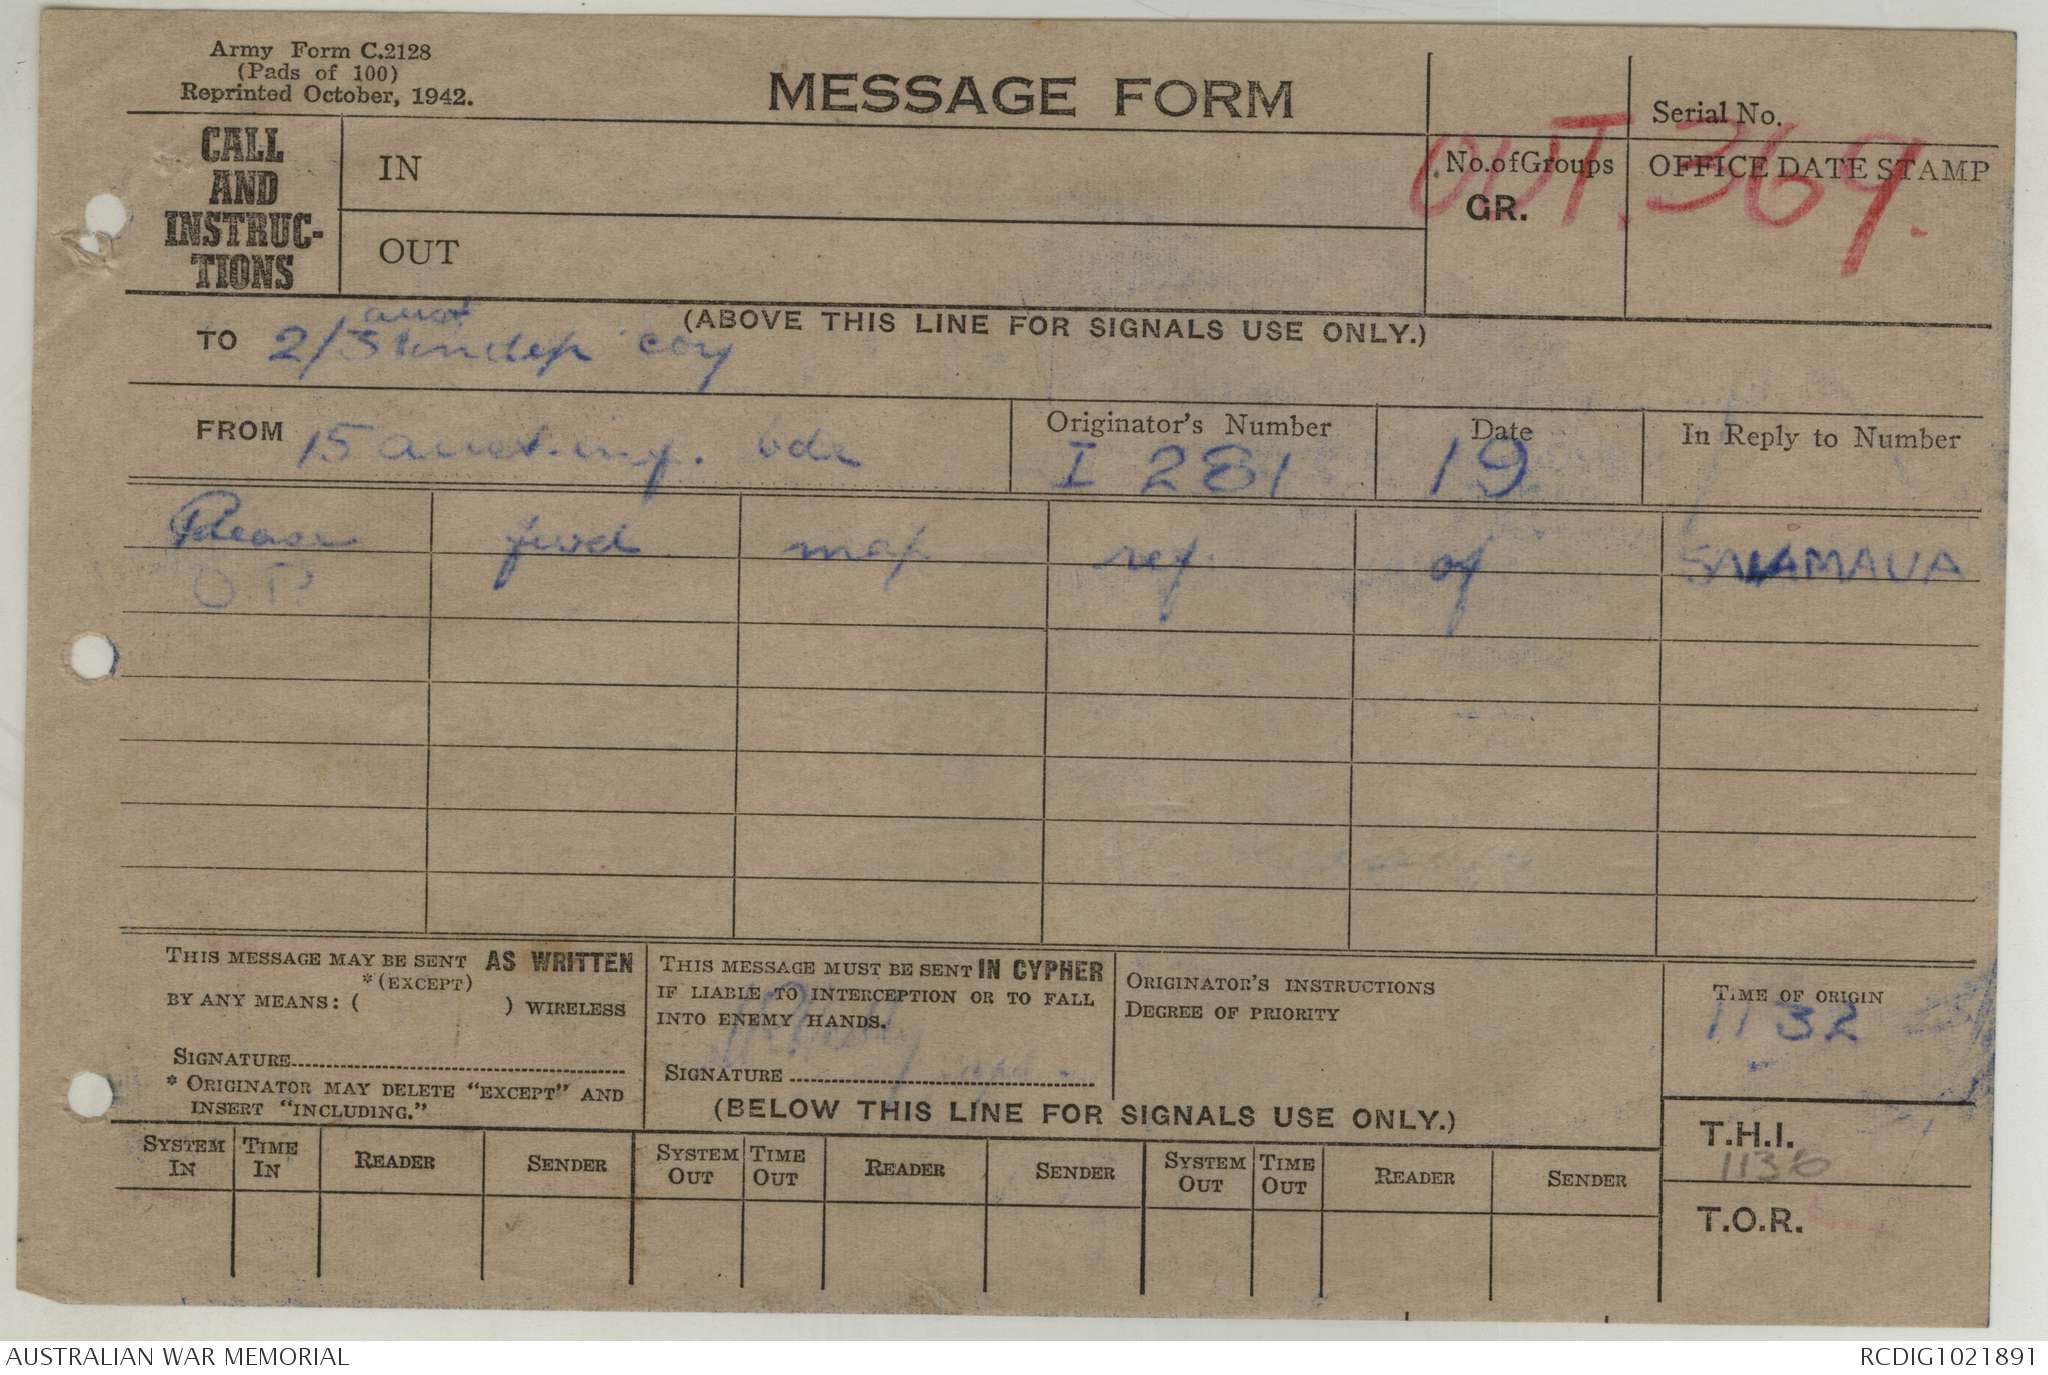 Army Form C.2128
(Pads of 100)
Reprinted October, 1942.
MESSAGE FORM
Serial No.
OUT. 369.
CALL AND INSTRUC-TIONS
IN
OUT
No. of Groups
GR.
OFFICE DATE STAMP
(ABOVE THIS LINE FOR SIGNALS USE ONLY.)
TO 2/3 aust indep coy
FROM 15 aust. inf. bde
Originator's Number
I 281
Date
19
In Reply to Number
Please fwd map ref. of SALAMAUA
O.P.
THIS MESSAGE MAY BE SENT AS WRITTEN
*(EXCEPT)
BY ANY MEANS: ( ) WIRELESS
SIGNATURE
* ORIGINATOR MAY DELETE "EXCEPT" AND
INSERT "INCLUDING."
THIS MESSAGE MUST BE SENT IN CYPHER
IF LIABLE TO INTERCEPTION OR TO FALL
INTO ENEMY HANDS.
SIGNATURE
ORIGINATOR'S INSTRUCTIONS
DEGREE OF PRIORITY
TIME OF ORIGIN
1132
(BELOW THIS LINE FOR SIGNALS USE ONLY.)
T.H.I.
1136
T.O.R.
SYSTEM IN TIME IN READER SENDER SYSTEM OUT TIME OUT READER SENDER SYSTEM OUT TIME OUT READER SENDER
AUSTRALIAN WAR MEMORIAL
RCDIG1021891